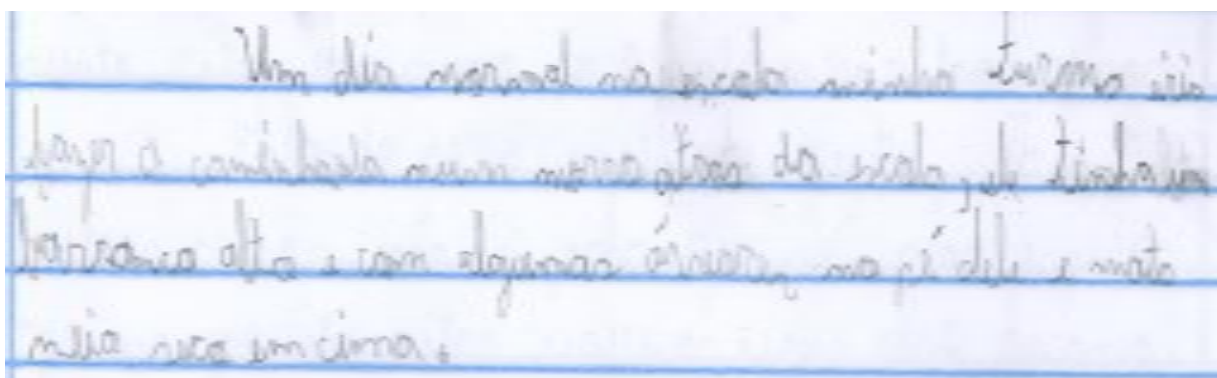 Um dia normal na escola minha turma iria
fazer a caminhada num morro atras da escola, ele tinha um
barranco alto e com algumas árvores no pé dele e mato
meio seco em cima.